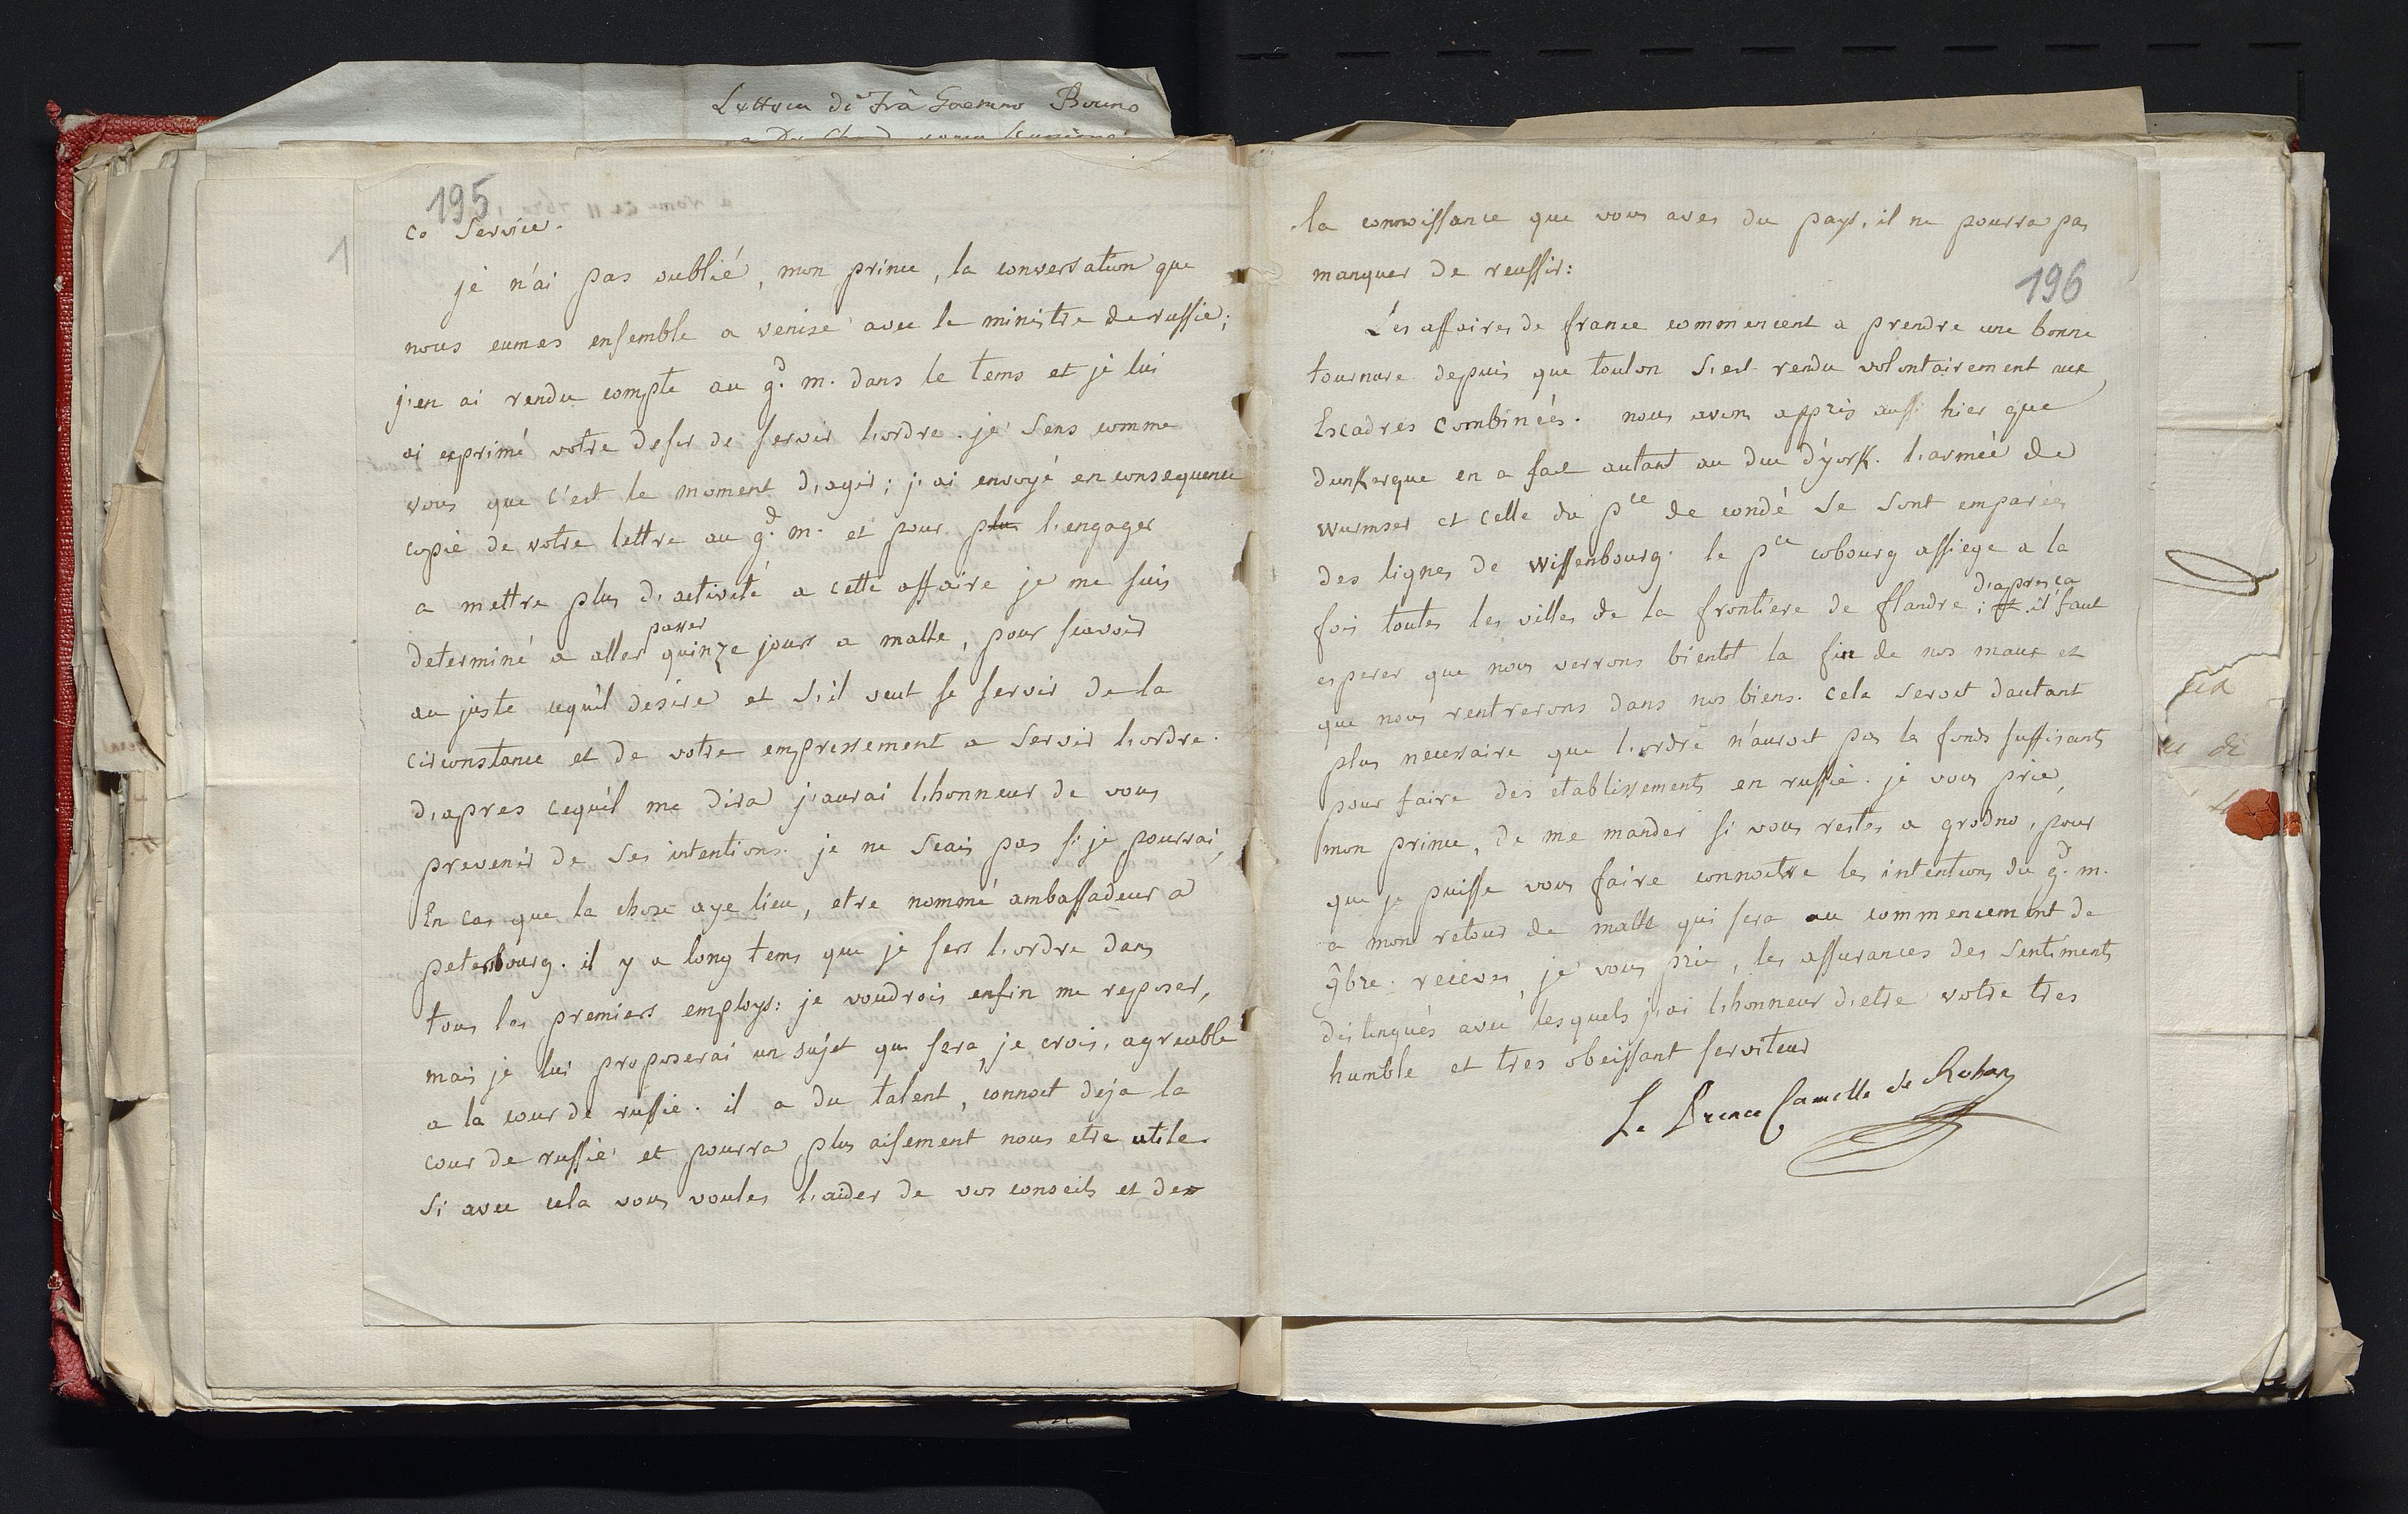 Lettera di Frà
195
1
ce Service.
je n'ai pas oublié, mon prince, la conversation que
nous eumes ensemble a venise avec le ministre de russie;
j'en ai rendu compte au gd. m. dans le tems et je lui
ai exprimé votre desir de servir l'ordre. je sens comme
vous que c'est le moment d'agir; j'ai envoyé en consequence
copie de votre lettre au gd. m. et pour plu l'engager
a mettre plus d'activité a cette affaire je me suis
determiné a aller passer quinze jours a malte, pour scavoir
au juste cequ'il desire et s'il veut se servir de la
circonstance et de votre empressement a servir l'ordre.
d'apres cequ'il me dira j'aurai l'honneur de vous
prevenir de ses intentions. je ne scais pas si je pourrai,
En cas que la chose aye lieu, etre nommé ambassadeur a
petersbourg. il y a long tems que je sers l'ordre dans
tous les premiers employs: je voudrois enfin me reposer,
mais je lui proposerai un sujet qui sera, je crois, agreable
a la cour de russie. il a du talent, connoit deja la
cour de russie et pourra plus aisement nous etre utile.
Si avec cela vous voules l'aider de vos conseils et de
la connoissance que vous aves du pays, il ne pourra pas
manquer de reussir:
196
Les affaires de france commencent a prendre une bonne
tournure depuis que toulon s'est rendu volontairement aux
Escadres combinées. nous avons appris aussi hier que
dunkerque en a fait autant au duc d'york. l'armée de
wurmser et celle du pce de condé se sont emparées
des lignes de wissenbourg. le pce cobourg assiege a la
fois toutes les villes de la frontiere de flandre; d'apres ca il faut
esperer que nous verrons bientot la fin de nos maux et
que nous rentrerons dans nos biens. cela seroit dautant
plus necessaire que l'ordre n'auroit pas les fonds suffisants
pour faire des etablissements en russie. je vous prie,
mon prince, de me mander si vous restes a grodno, pour
que je puisse vous faire connoitre les intentions du gd. m.
a mon retour de malte qui sera au commencement de
9bre. receves, je vous prie, les assurances des sentiments
distingués avec lesquels j'ai l'honneur d'etre votre tres
humble et tres obeissant serviteur
Le Prince Camille de Rohan
di